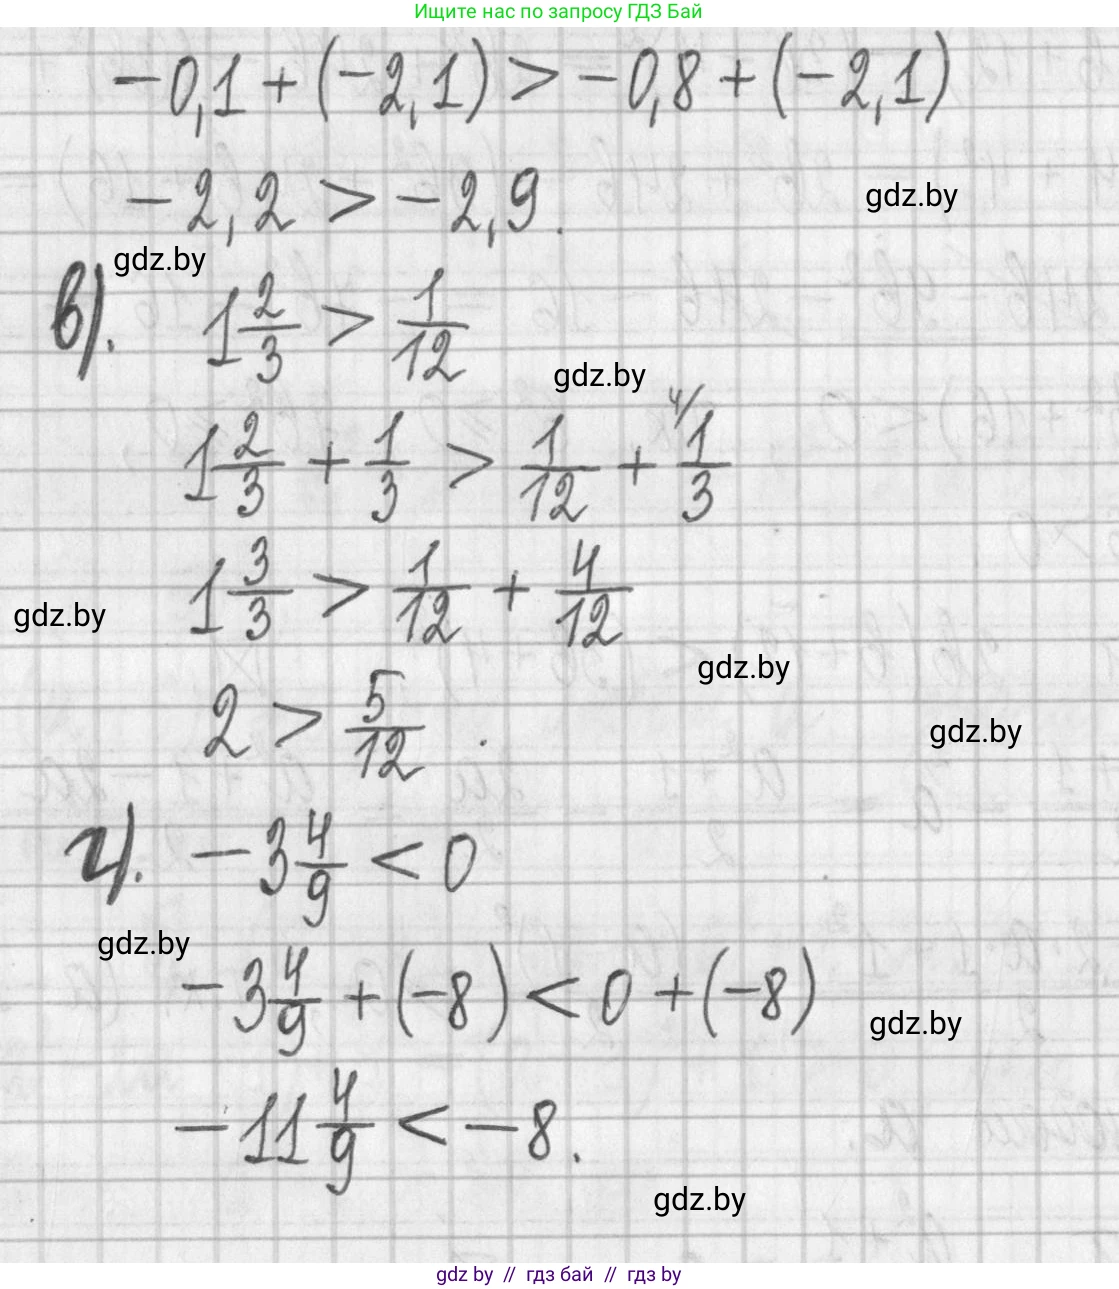 Ищите нас по запросу ГДЗ Бай
-0,1 + (-2,1) > -0,8 + (-2,1)
-2,2 > -2,9.
gdz.by
gdz.by
в). 1 2/3 > 1/12
gdz.by
1 2/3 + 1/3 > 1/12 + 4/ 1/3
1 3/3 > 1/12 + 4/12
gdz.by
gdz.by
2 > 5/12.
gdz.by
г). -3 4/9 < 0
gdz.by
-3 4/9 + (-8) < 0 + (-8)
gdz.by
-11 4/9 < -8.
gdz.by
gdz by // гдз бай // гдз by